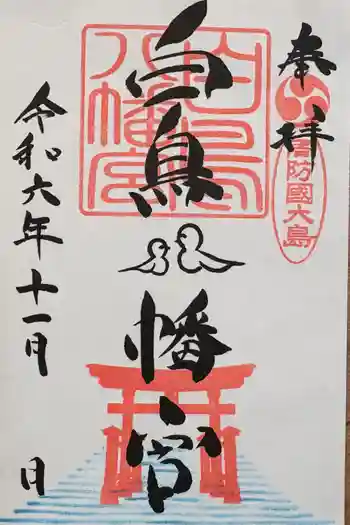 奉拝
周防國大島
白鳥八幡宮
白鳥
八幡宮
令和六年十一月 日